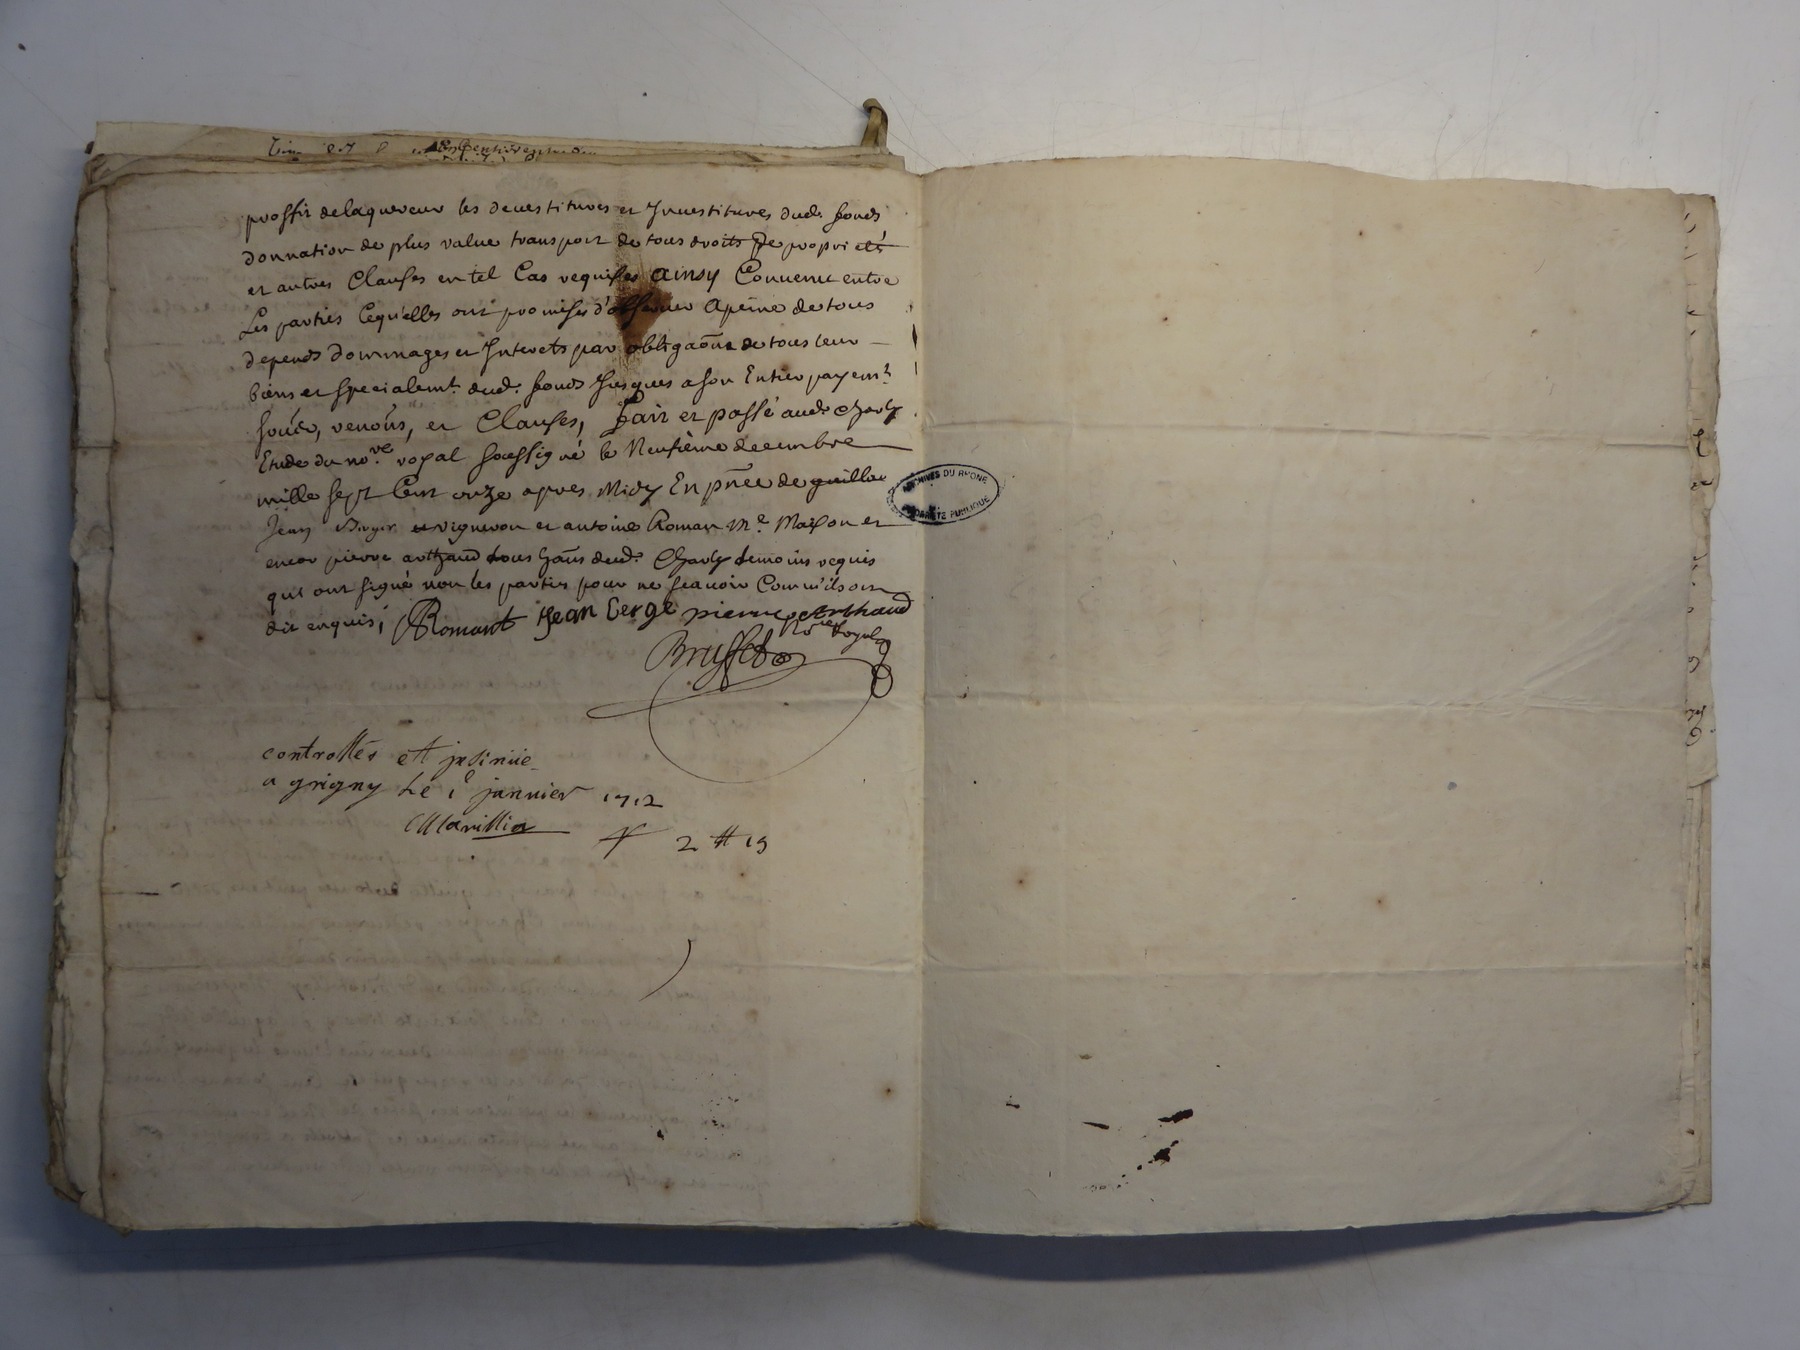 proffit delaquereur les devestitures et Jnvestitures dud. fonds
donnation de plus value transport de tous droits de proprieté
et autres Clauses en tel Cas requises ainsy Convenu entre
Les parties Cequelles ont promises d'observer apeine de tous
depends dommages et Interets par obbligaõn de tous leur
biens et specialemt. dud. fonds Jusques a son Entier payemt.
soub, renons, et Clauses, fait et passé aud. charly
Etude du nore. royal soussigné le Neufième decembre
mille sept Cent onze apres Midy En pñce de
Jean vigneron et antoine Roman me. Masson et
encor pierre arthaud tous hãns dud. Charly temoins requis
qui ont signé non les parties pour ne scavoir Comm'ils ont
dit enquis, Romant Jean berge pierre Arthaud
Brusset nore. Royal
controllés ett jnsinüe
a grigny Le 1e janvier 1712
2 tt 19
ARCHIVES DU RHONE